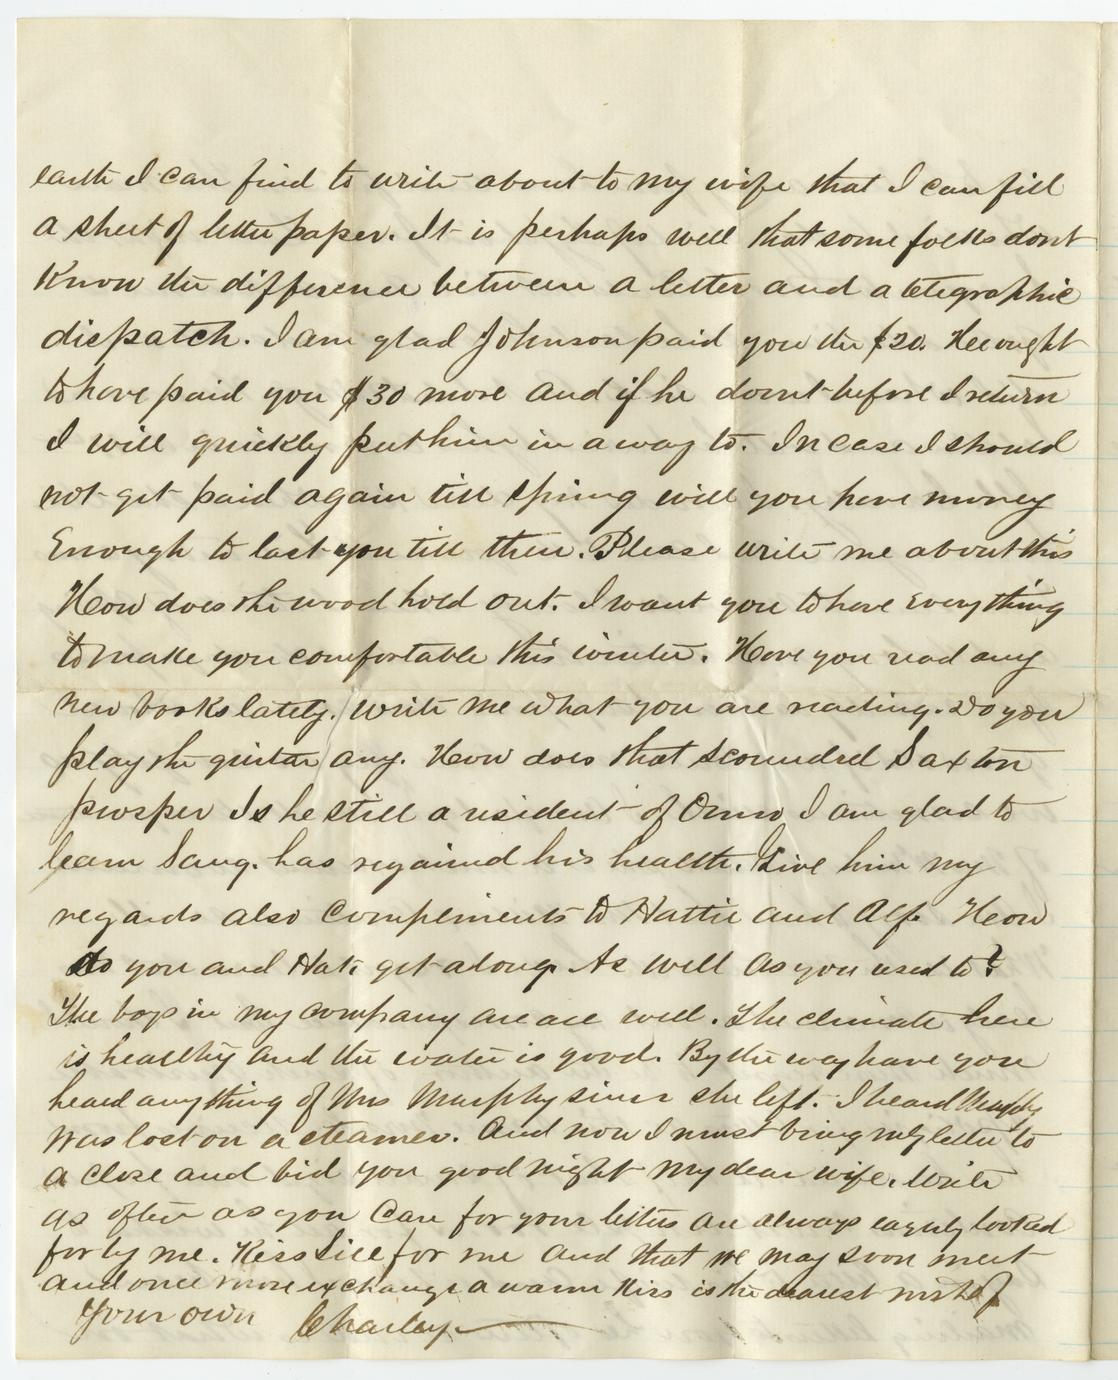 earth I can find to write about to my wife that I can fill
a sheet of letter paper. It is perhaps well that some folks dont
Know the difference between a letter and a telegraphic
dispatch. I am glad Johnson paid you the $20. He ought
to have paid you $30 more and if he doesnt before I return
I will quickly put him in a way to. In case I should
not get paid again till Spring will you have money
Enough to last you till then. Please write me about this
How does the wood hold out. I want you to have Everything
to make you comfortable this winter. Have you read any
new books lately. Write me what you are reading. Do you
play the guitar any. How does that scoundrel Saxton
prosper Is he still a resident of Orono I am glad to
learn Sang. has regained his health. Give him my
regards also Compliments to Hattie and Alf. How
do you and Hat. get along. As well as you used to?
The boys in my company are all well. The climate here
is healthy and the water is good. By the way have you
heard anything of Mrs Murphy since she left. I heard Murphy
was lost on a steamer. And now I must bring my letter to
a close and bid you good night my dear wife. Write
as often as you Can for your letters are always eagerly looked
for by me. Kiss Lill for me and that we may soon meet
and once more exchange a warm Kiss is the dearest wish of
Your own Charley